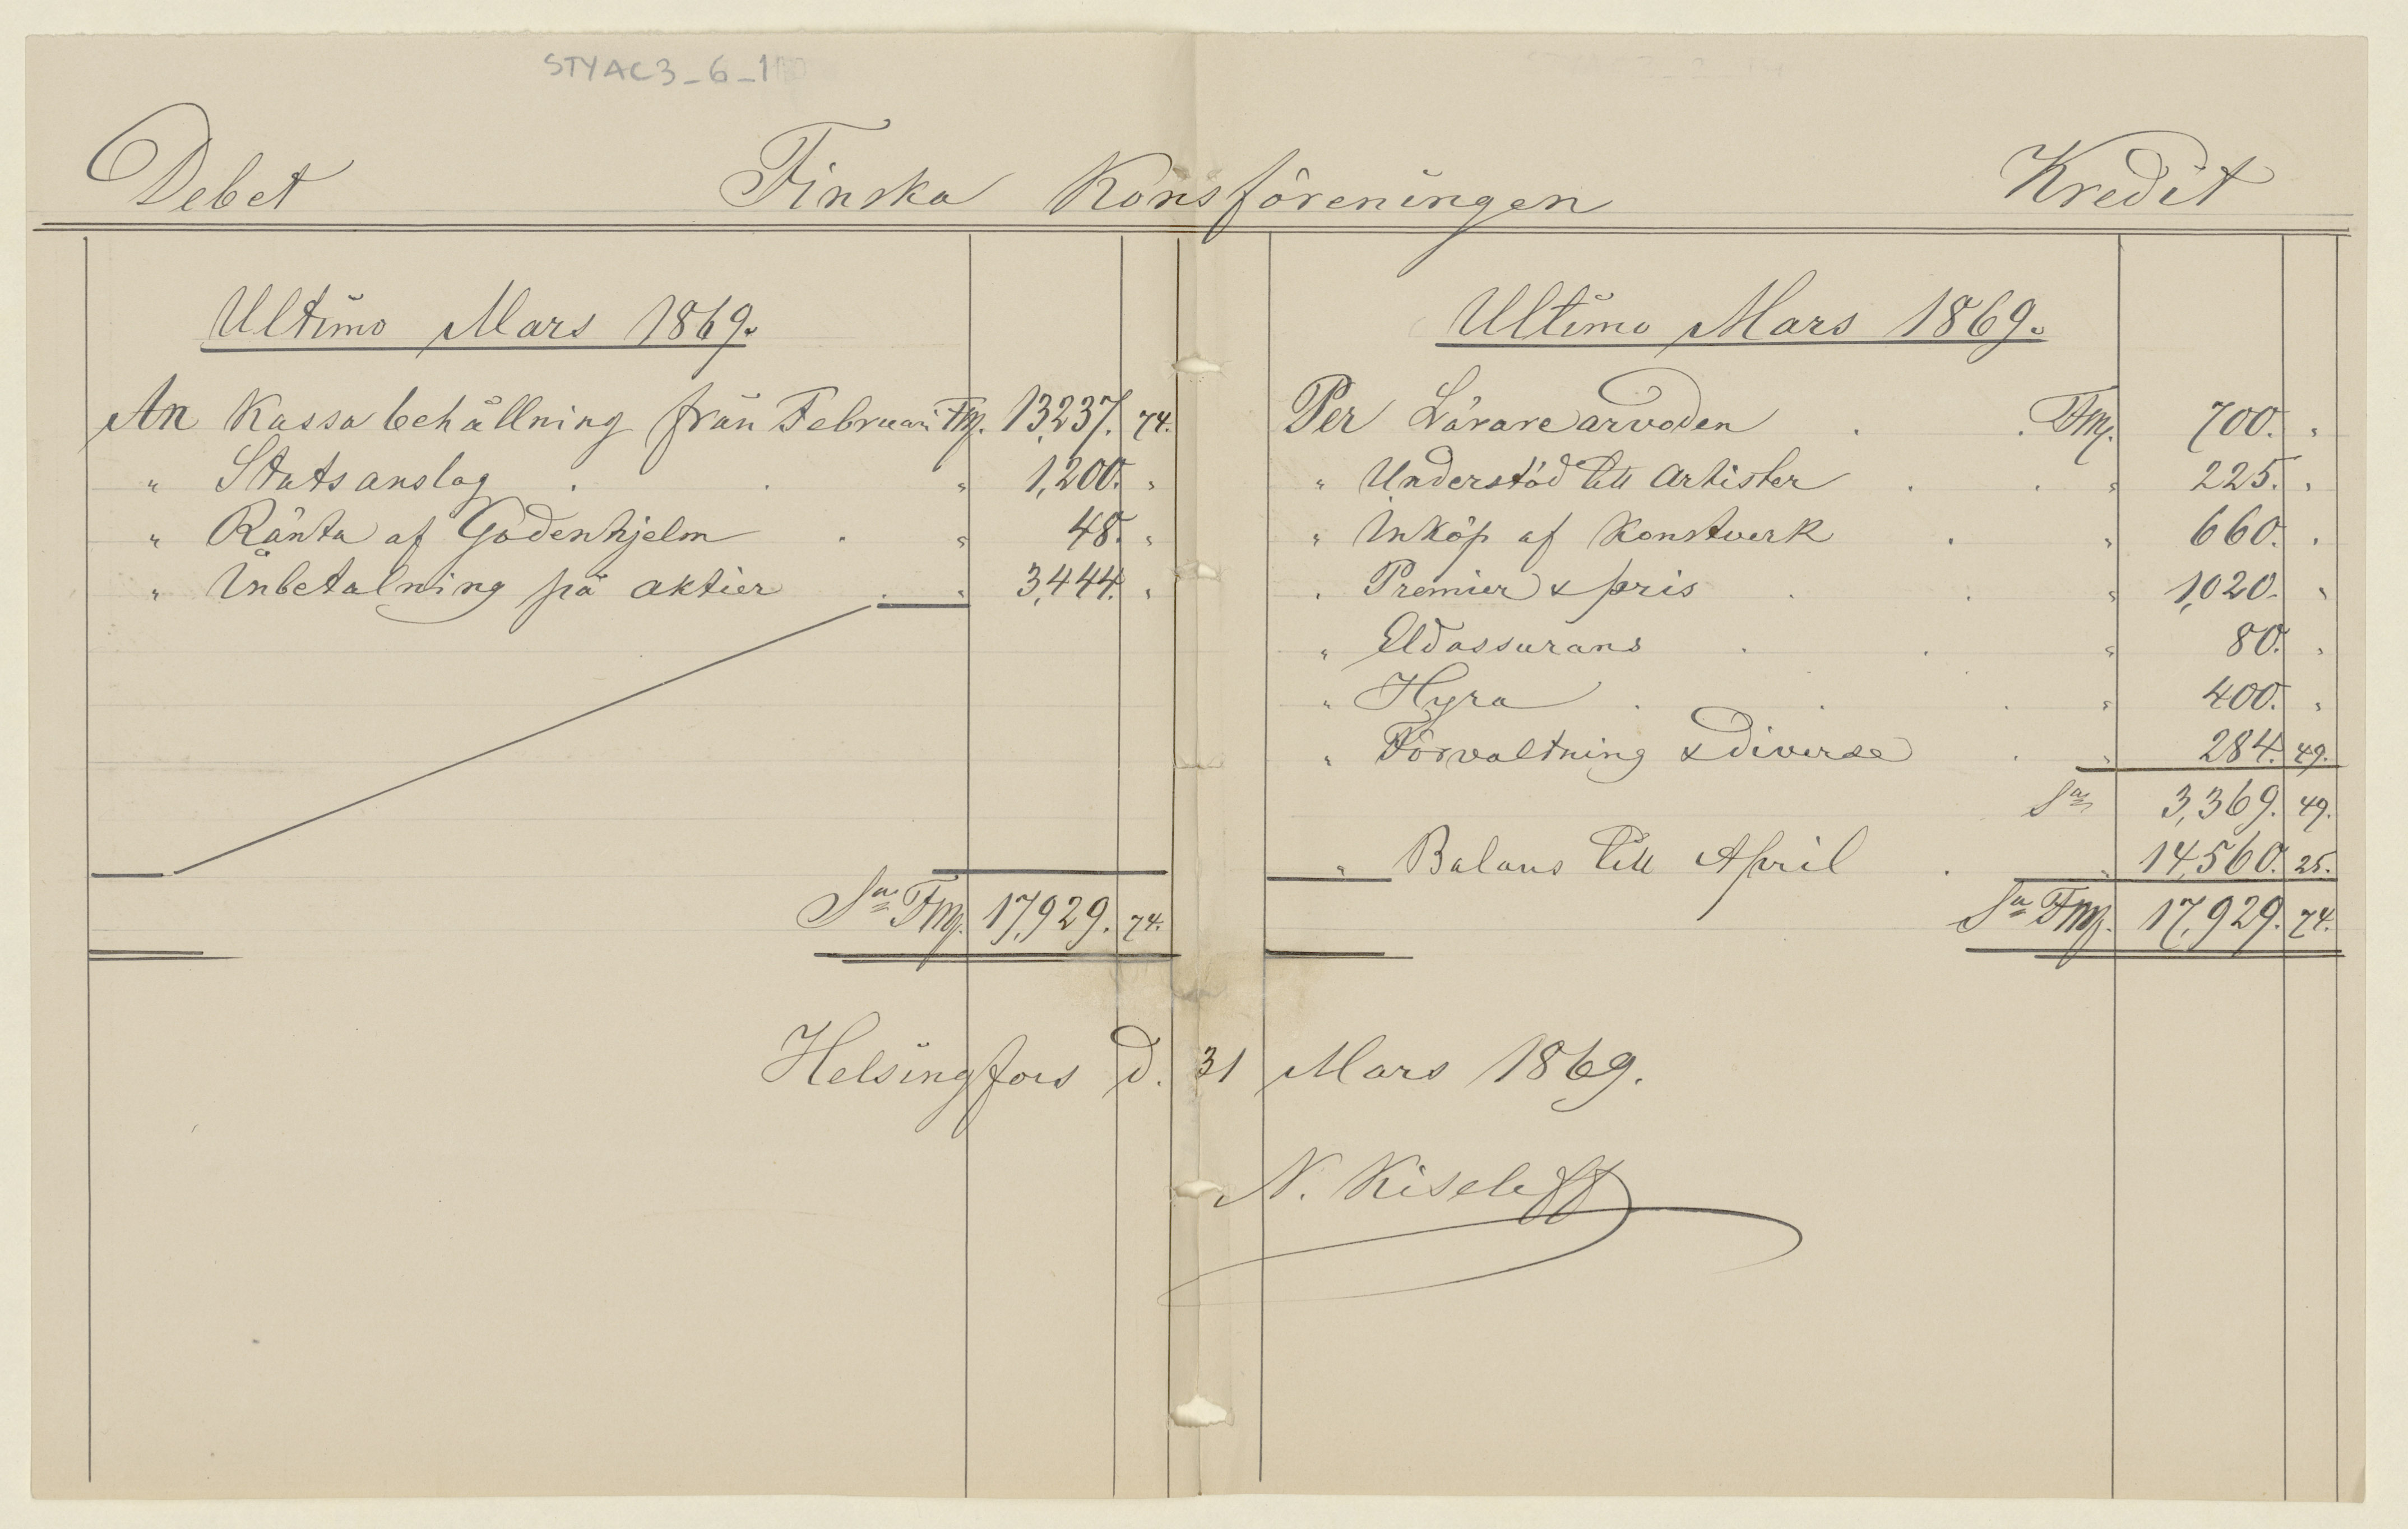 STYAC3_6_1
Debet Finska Konsföreningen Kredit
Ultimo Mars 1869.
An Kassabehållning från Februari Fmk. 13,237. 74.
" Statsanslag . . " 1,200. "
" Ränta af Godenhjelm . " 48. "
" Inbetalning på aktier . " 3,444. "
Sa Fmk. 17,929. 74.
Ultimo Mars 1869.
Per Lärarearvoden . . Fmk. 700. "
" Understöd till Artister . . " 225. "
" Inköp af Konstverk . " 660. "
" Premier & pris . . " 1,020. "
" Eldassurans . . " 80. "
" Hyra . . . " 400. "
" Förvaltning & diverse . " 284. 49.
Sa 3,369. 49.
" Balans till April . " 14,560. 25.
Sa Fmk. 17,929. 74.
Helsingfors d. 31 Mars 1869.
N. Kiseleff